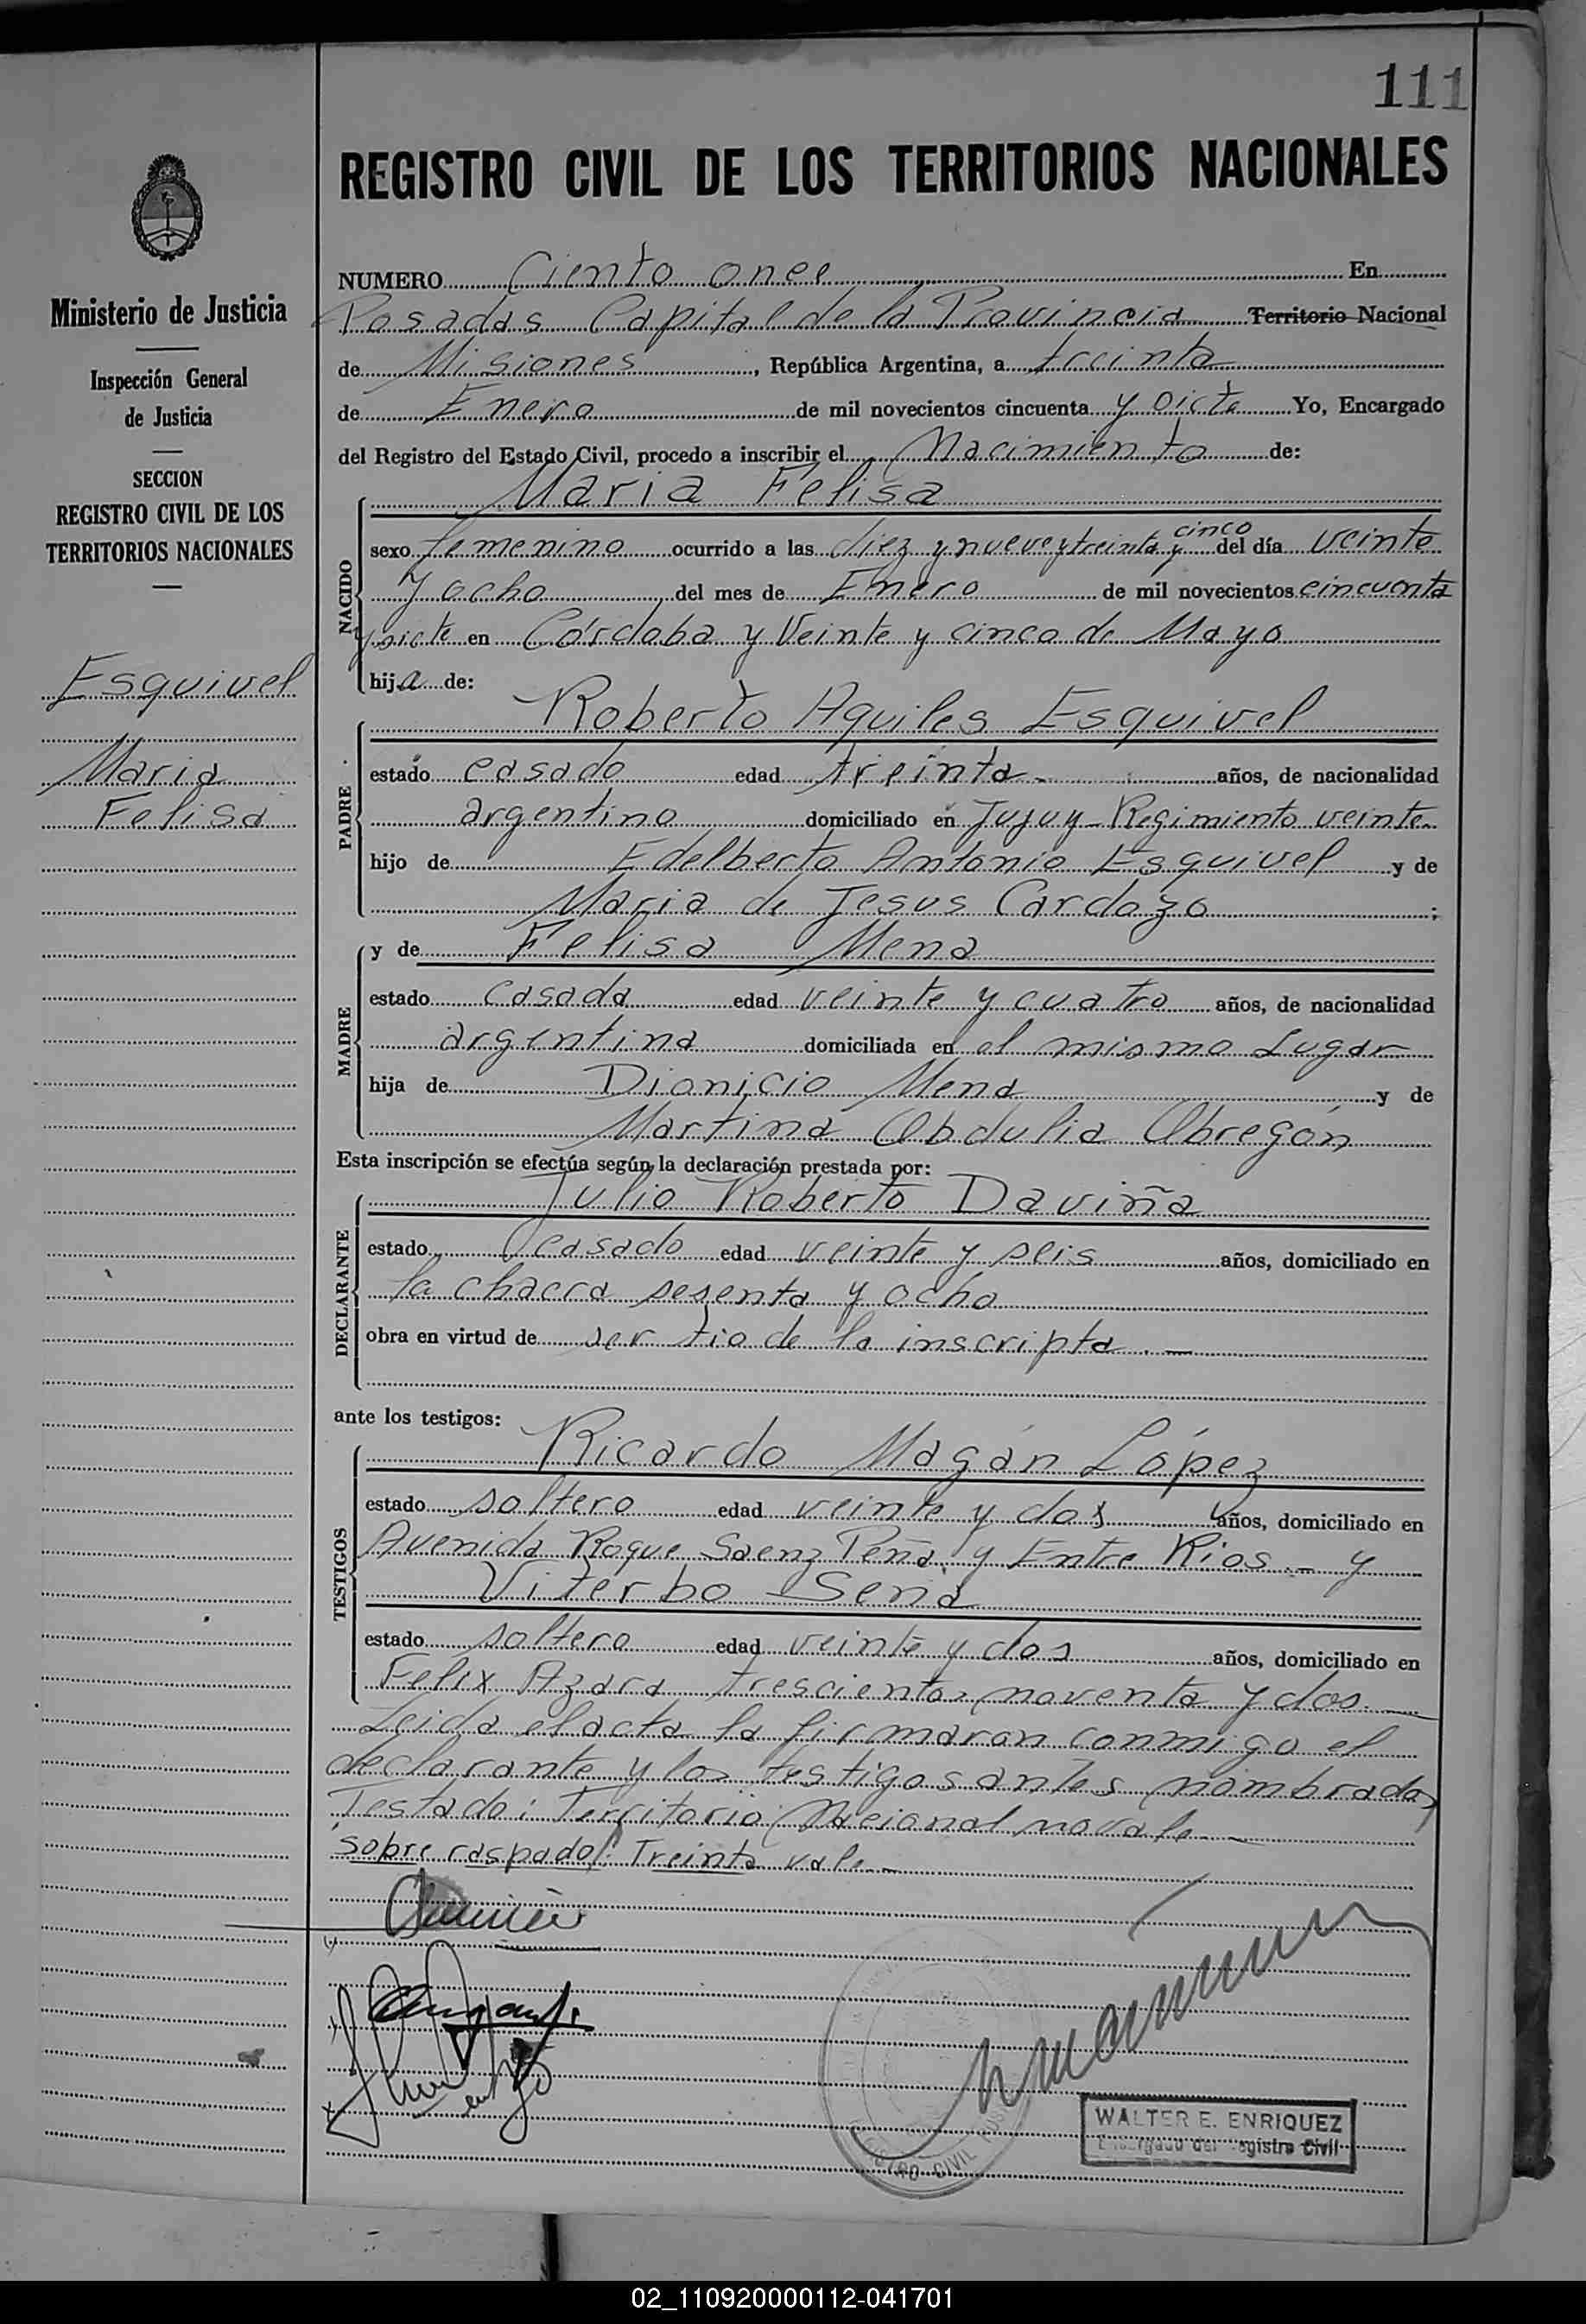 111
REGISTRO CIVIL DE LOS TERRITORIOS NACIONALES
Ministerio de Justicia
Inspección General
de Justicia
SECCION
REGISTRO CIVIL DE LOS
TERRITORIOS NACIONALES
Esquivel
Maria
Felisa
NUMERO Ciento once En
Posadas Capital de la Provincia Territorio Nacional
de Misiones, República Argentina, a treinta
de Enero de mil novecientos cincuenta y siete Yo, Encargado
del Registro del Estado Civil, procedo a inscribir el Nacimiento de:
Maria Felisa
NACIDO
sexo femenino ocurrido a las diez y nueve y treinta y cinco del día veinte
y ocho del mes de Enero de mil novecientos cincuenta
y siete en Córdoba y Veinte y cinco de Mayo
hija de:
Roberto Aquiles Esquivel
PADRE
estado casado edad treinta.- años, de nacionalidad
argentino domiciliado en Jujuy - Regimiento veinte
hijo de Edelberto Antonio Esquivel y de
Maria de Jesus Cardozo ;
y de Felisa Mena
MADRE
estado casada edad veinte y cuatro años, de nacionalidad
argentina domiciliada en el mismo Lugar
hija de Dionicio Mena y de
Martina Obdulia Obregón
Esta inscripción se efectúa según la declaración prestada por:
Julio Roberto Daviña
DECLARANTE
estado casado edad veinte y seis años, domiciliado en
la chacra sesenta y ocho
obra en virtud de ser tio de la inscripta.-
ante los testigos:
Ricardo Magán López
TESTIGOS
estado soltero edad veinte y dos años, domiciliado en
Avenida Roque Saenz Peña y Entre Rios.- y
Viterbo Sena
estado soltero edad veinte y dos años, domiciliado en
Felix Azara trescientos noventa y dos.
Leida el acta la firmaron conmigo el
declarante y los testigos antes nombrados
Testado: Territorio Nacional no vale.-
sobre raspado: Treinta vale.-
WALTER E. ENRIQUEZ
Encargado del Registro Civil
REGISTRO CIVIL
02_110920000112-041701